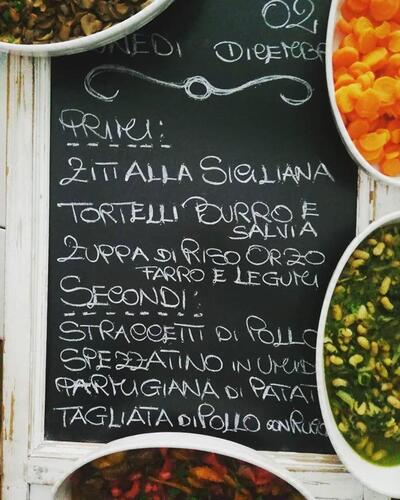 02
UNEDI DICEMBR
PRIMI:
ZITI ALLA SICILIANA
TORTELLI BURRO E
SALVIA
ZUPPA DI RISO ORZO
FARRO E LEGUMI
SECONDI:
STRACCETTI DI POLLO
SPEZZATINO IN UMID
PARMIGIANA DI PATAT
TAGLIATA DI POLLO CON RUCO